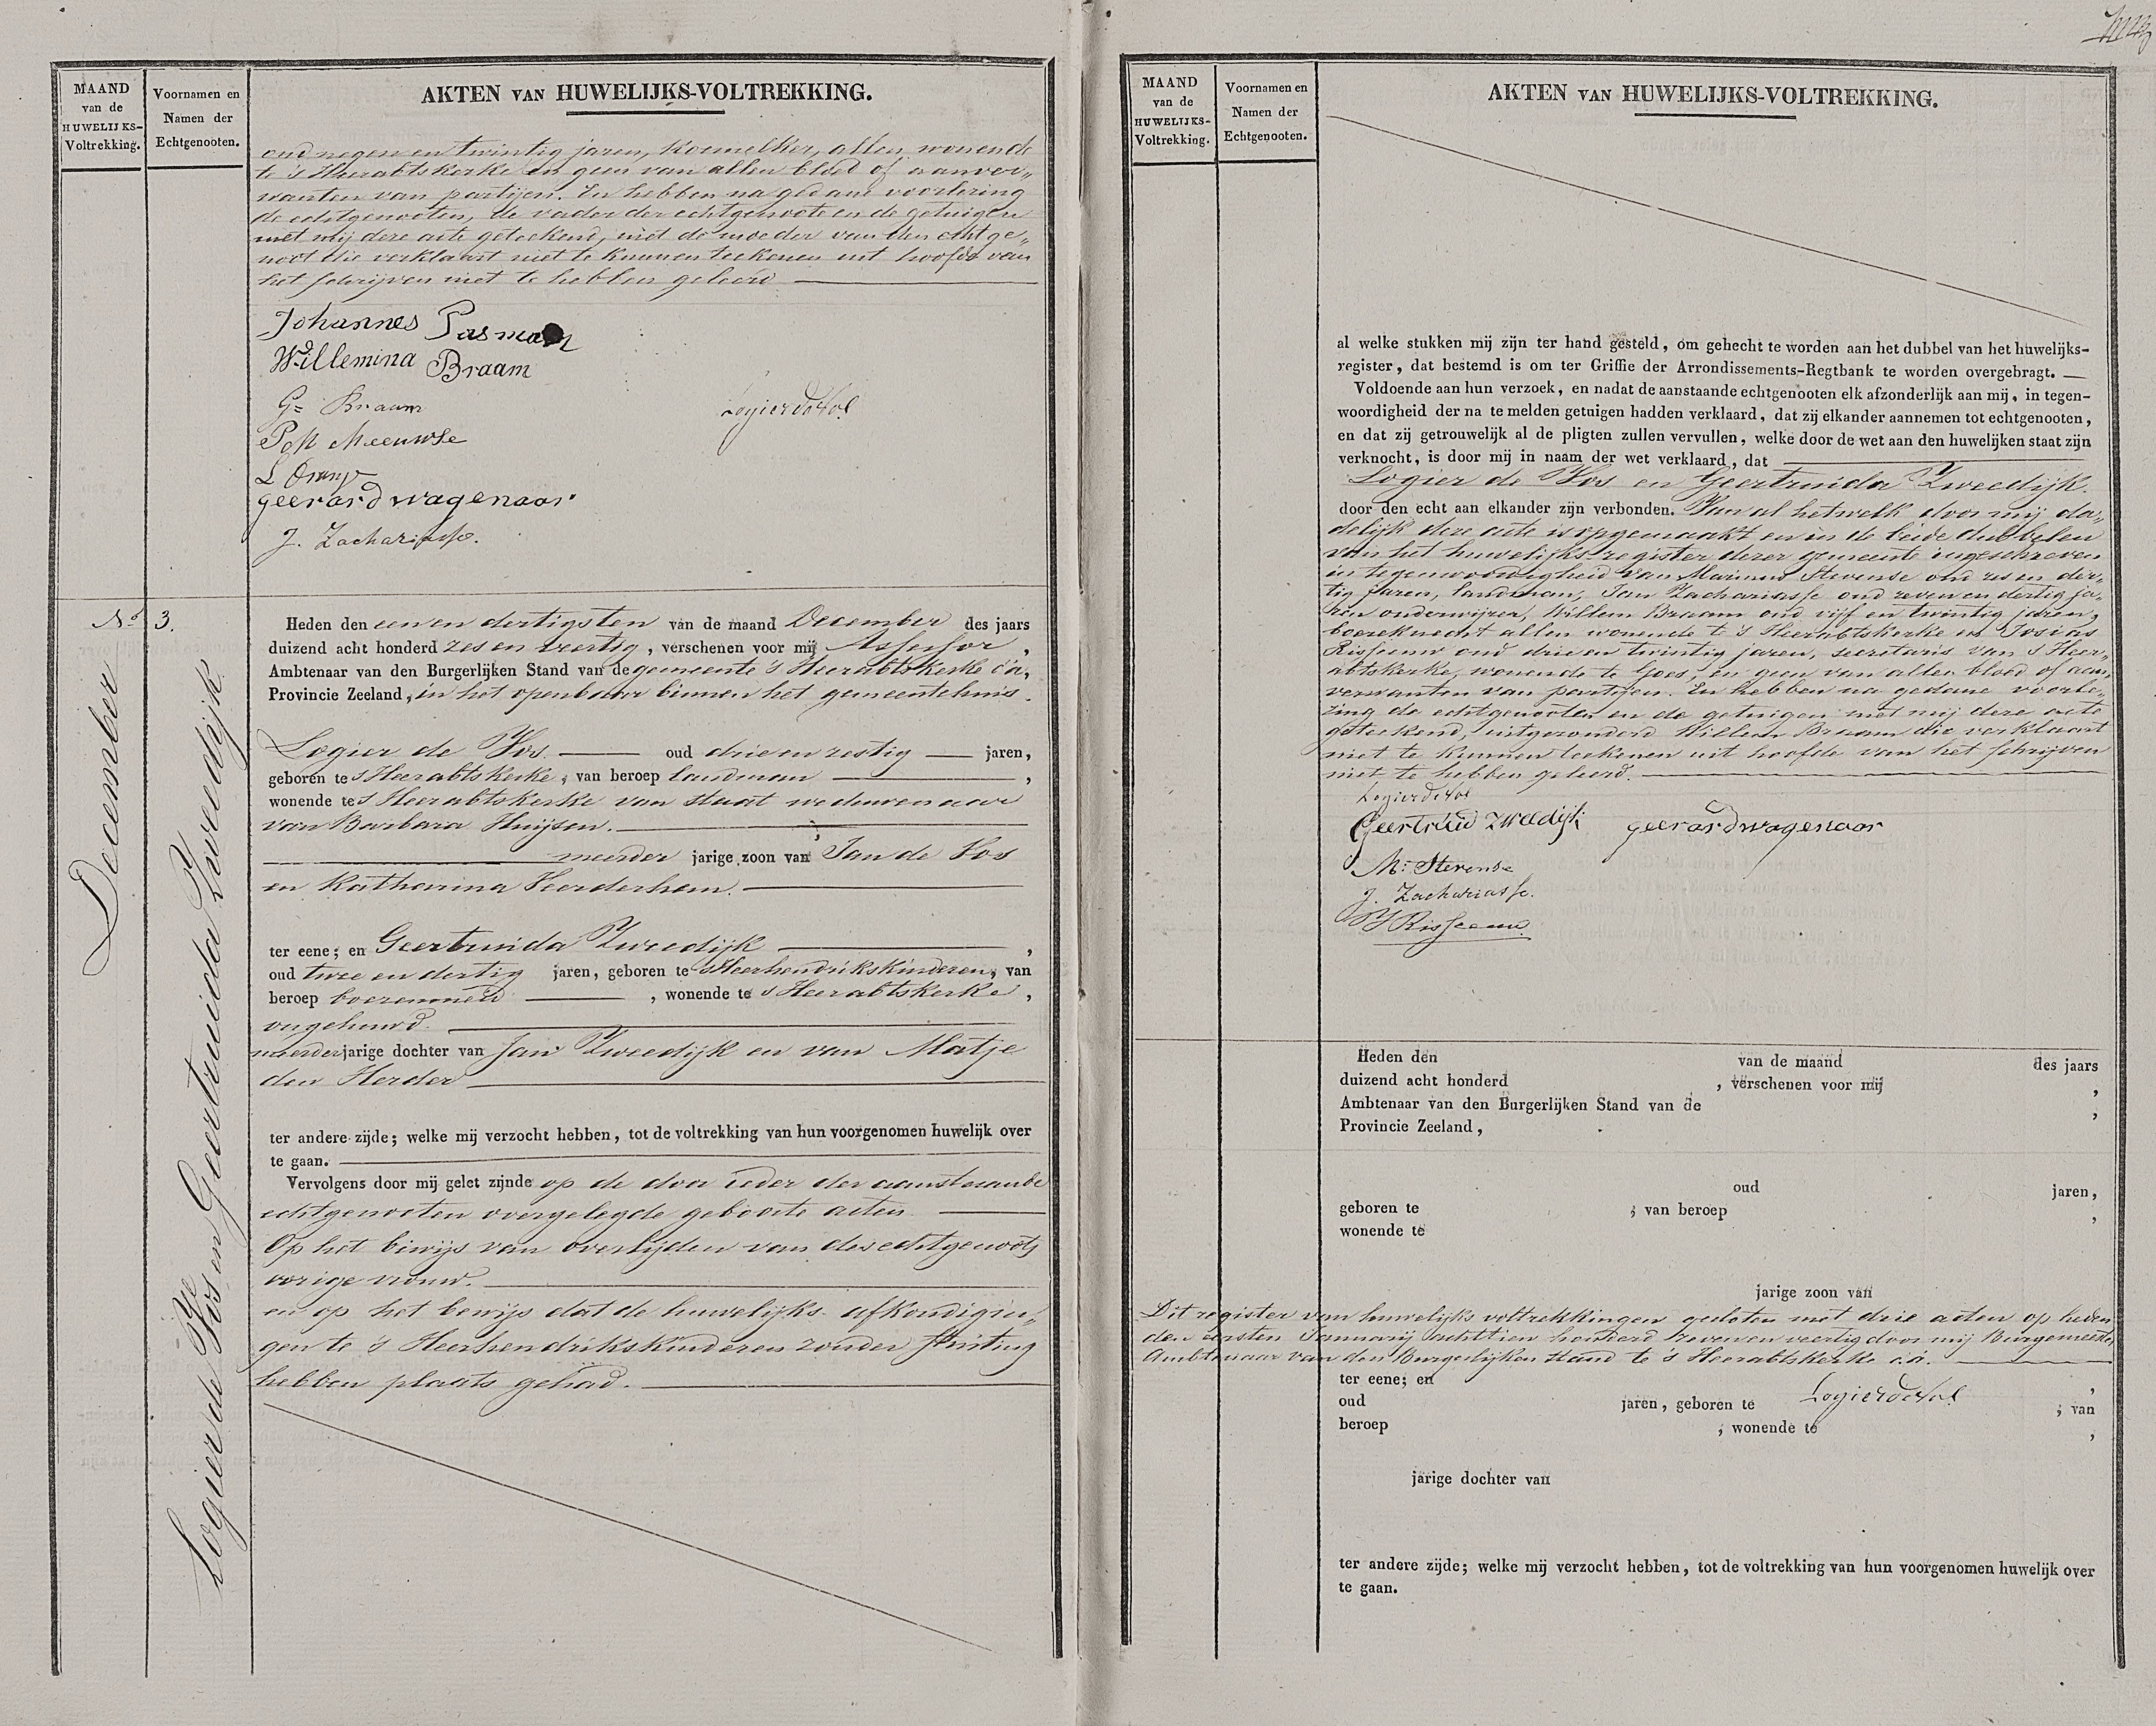 MAAND
van de
HUWELIJKS-
Voltrekking.
Voornamen en
Namen der
Echtgenooten.
AKTEN VAN HUWELIJKS-VOLTREKKING.
oud negen en twintig jaren, koornelker, allen wonende
te 's Heerabtskerke en geen van allen bloed of aanver„
wanten van partijen. En hebben na gedane voorlezing
de echtgenooten, de vader der echtgenoote en de getuigen
met mij deze acte geteekend, niet de moeder van den echtge„
noot die verklaart niet te kunnen teekenen uit hoofde van
het schrijven niet te hebben geleerd
Johannes Pasman
Willemina Braam
G= Braam
Logier de Vos
Meeuwse
geerard wagenaar
J. Zachariasse.
No 3.
December
Logier de Vos en Geertruida Zweedijk
Heden den een en dertigsten van de maand December des jaars
duizend acht honderd zes en veertig, verschenen voor mij Assessor,
Ambtenaar van den Burgerlijken Stand van de gemeente 's Heerabtskerke c.a,
Provincie Zeeland, in het openbaar binnen het gemeentehuis.
Logier de Vos. oud drie en zestig jaren,
geboren te 's Heerabtskerke, van beroep landman,
wonende te 's Heerabtskerke van staat weduwenaar
van Barbara Huijsen.
meerder jarige zoon van Jan de Vos
en Katharina
ter eene; en Geertruida Zweedijk,
oud twee en dertig jaren, geboren te 's Heerhendrikskinderen, van
beroep boerenmeid, wonende te 's Heerabtskerke,
ongehuwd.
meerderjarige dochter van Jan Zweedijk en van Matje
den Herder
ter andere zijde; welke mij verzocht hebben, tot de voltrekking van hun voorgenomen huwelijk over
te gaan.
Vervolgens door mij gelet zijnde op de door ieder der aanstaande
echtgenooten overgelegde geboorte acten
Op het bewijs van overlijden van des echtgenoots
vorige vrouw.
en op het bewijs dat de huwelijks afkondigin„
gen te 's Heerhendrikskinderen zonder stuiting
hebben plaats gehad.
MAAND
van de
HUWELIJKS-
Voltrekking.
Voornamen en
Namen der
Echtgenooten.
AKTEN VAN HUWELIJKS-VOLTREKKING.
al welke stukken mij zijn ter hand gesteld, om gehecht te worden aan het dubbel van het huwelijks-
register, dat bestemd is om ter Griffie der Arrondissements-Regtbank te worden overgebragt.
Voldoende aan hun verzoek, en nadat de aanstaande echtgenooten elk afzonderlijk aan mij, in tegen-
woordigheid der na te melden getuigen hadden verklaard, dat zij elkander aannemen tot echtgenooten,
en dat zij getrouwelijk al de pligten zullen vervullen, welke door de wet aan den huwelijken staat zijn
verknocht, is door mij in naam der wet verklaard, dat
Logier de Vos en Geertruida Zweedijk.
door den echt aan elkander zijn verbonden. Van al hetwelk door mij da„
delijk deze acte is opgemaakt en in de beide dubbelen
van het huwelijks register dezer gemeente ingeschreven
in tegenwoordigheid van Marinus Stevense oud zes en der„
tig jaren, landman, Jan Zachariasse oud zeven en dertig ja„
ren onderwijzer, Willem Braam oud vijf en twintig jaren,
boereknecht allen wonende te 's Heerabtskerke en Josias
Risseeuw oud drie en twintig jaren, secretaris van 's Heer„
abtskerke, wonende te Goes, en geen van allen bloed of aan„
verwanten van partijen. En hebben na gedane voorle„
zing de echtgenooten en de getuigen met mij deze acte
geteekend, uitgezonderd Willem Braam die verklaart
niet te kunnen teekenen uit hoofde van het schrijven
niet te hebben geleerd.
Logier de Vos
Geertruid Zweedijk geerard wagenaar
M: Stevense
J. Zachariasse.
J Risseeuw
Heden den van de maand des jaars
duizend acht honderd , verschenen voor mij ,
Ambtenaar van den Burgerlijken Stand van de ,
Provincie Zeeland,
oud jaren,
geboren te ; van beroep ,
wonende te
jarige zoon van
Dit register van huwelijks voltrekkingen gesloten met drie acten op heden
den eersten Januarij achttien honderd zeven en veertig door mij Burgemeester
Ambtenaar van den Burgerlijken Stand te 's Heerabtskerke c.a.
ter eene; en ,
Logier de Vos
oud jaren, geboren te ; van
beroep ; wonende te ,
jarige dochter van
ter andere zijde; welke mij verzocht hebben, tot de voltrekking van hun voorgenomen huwelijk over
te gaan.